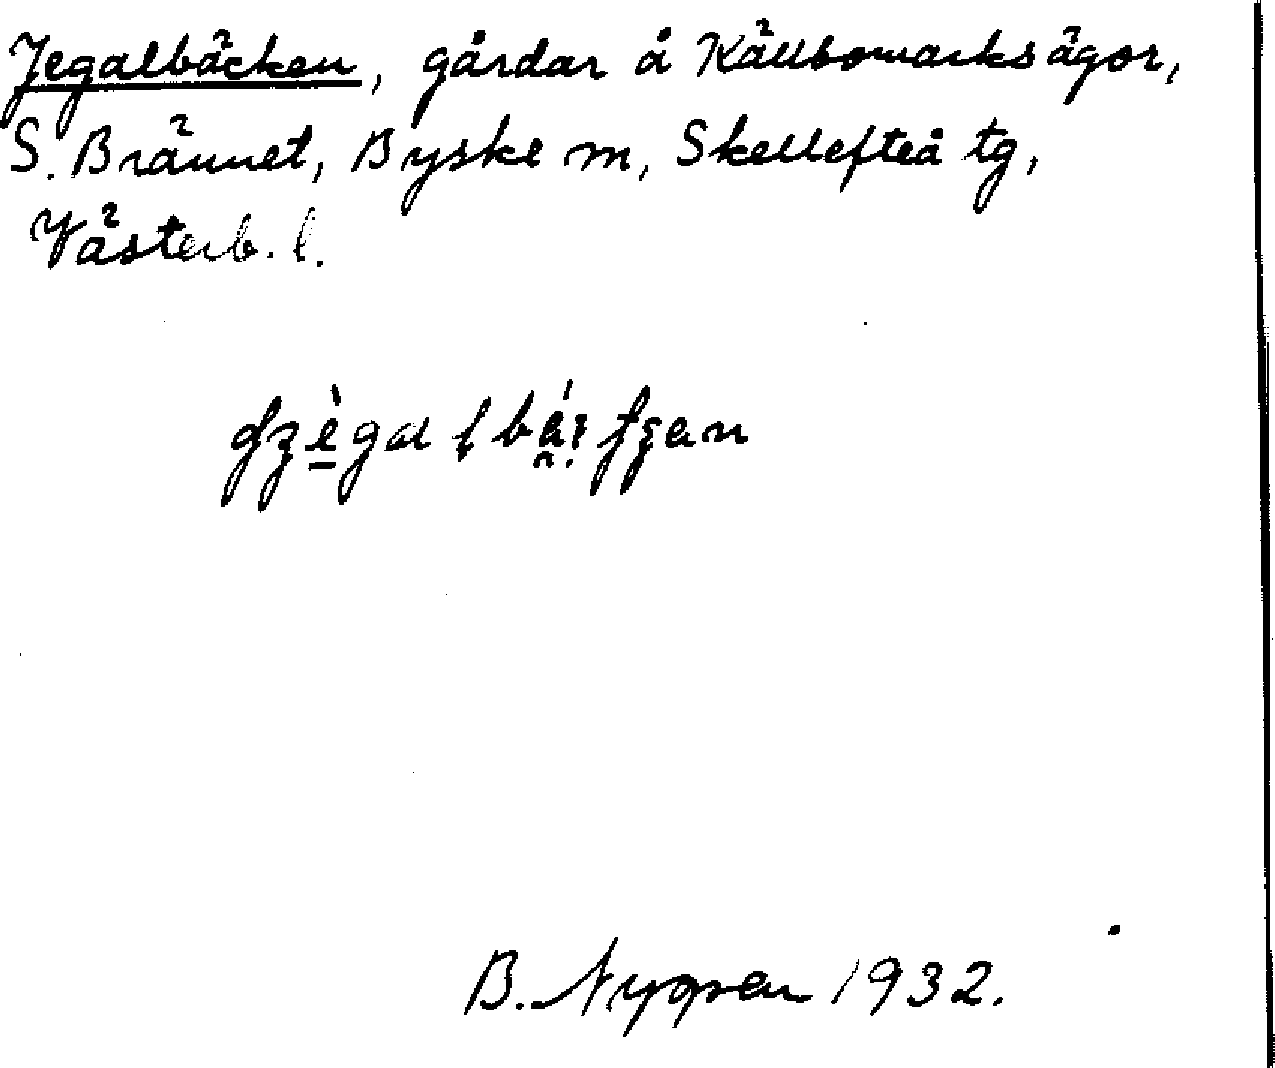 Jegalbäcken, gårdar å Källbomarks ägor,
S. Brännet, Byske sn, Skellefteå tg,
Västerb. l.
B. Nygren 1932.